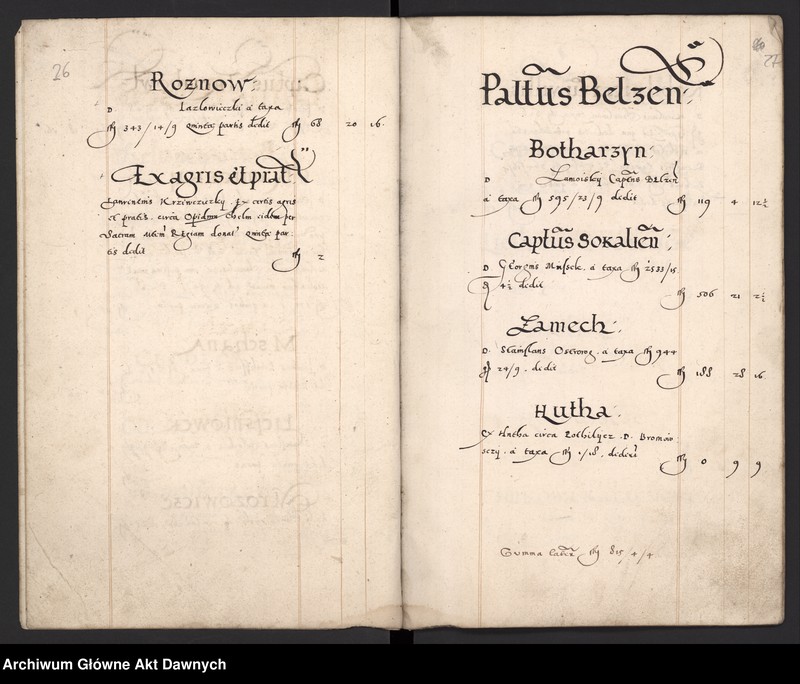 26
Roznow
D Jazlowieczki a taxa
fl 343/14/9 quintae partis dedit fl 68 20 16
Ex agris et prat
Laurentius Krziwcziczky Ex certis agris
et pratis circa Opidum Chelm eidem per
Sacram Mtem Regiam donat quintae par:
tis dedit fl 2
27
Paltus Belzen
Botharzyn
D Zamoisky Captus Belzen
a taxa fl 595/23/9 dedit fl 119 4 12½
Captus Sokalien
D Georgius a taxa fl 2533/15
4½ dedit fl 506 21 2½
Zamech
D Stanislaus Ostrorog a taxa fl 944
24/9 dedit fl 188 28 16
Hutha
Ex Hutha circa D
a taxa fl 1/18 fl 0 9 9
Summa fl 815/4/4
Archiwum Główne Akt Dawnych